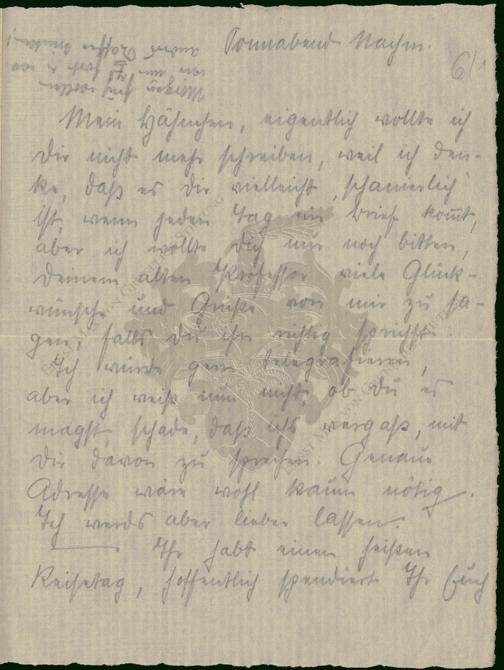 Sonnabend Nachm.
6/1
Mein Hähnchen, eigentlich wollte ich
Dir nicht mehr schreiben, weil ich den-
ke, daß es Dir vielleicht „schamerlich“
ist, wenn jeden Tag ein Brief kommt,
aber ich wollte Dich nur noch bitten,
Deinem alten Professor viele Glück-
wünsche und Grüße von mir zu sa-
gen, falls Du ihn richtig sprichst.
Ich würde gern telegrafieren,
aber ich weiß nun nicht ob Du es
magst, schade, daß ich's vergaß, mit
Dir davon zu sprechen. Genaue
Adresse wäre wohl kaum nötig.
Ich werds aber lieber lassen.
Ihr habt einen heißen
Reisetag, hoffentlich spendiert Ihr Euch